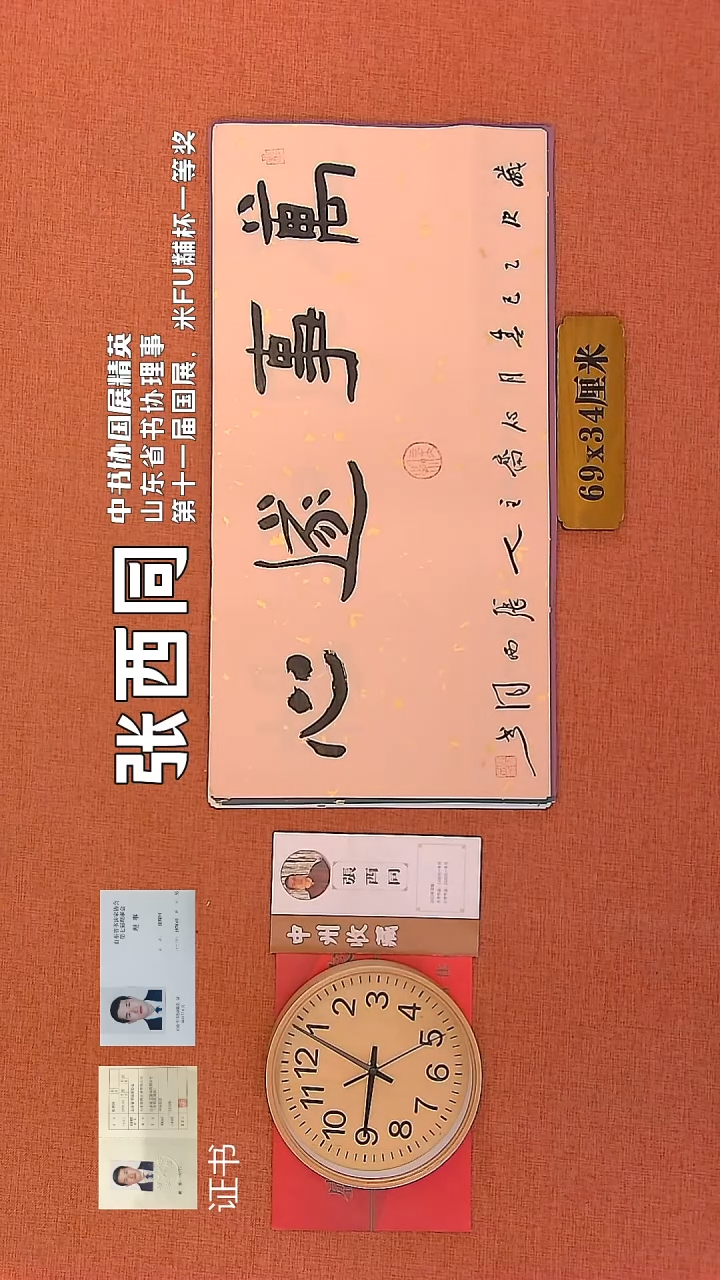 张西同
中书协国展精英
山东省书协理事
第十一届国展，米FU黼杯一等奖
萬事遂心
歲次乙巳春月心齋主人張西同书
69x34厘米
中州收藏
張西同
理事
证书
12
1
2
3
4
5
6
7
8
9
10
11